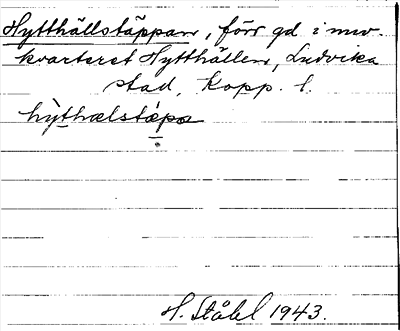 Hytthällstäppan, förr gd i nuv.
kvarteret Hytthällen, Ludvika
stad, Kopp. l.
hỳthælstæpa
H. Ståhl 1943.